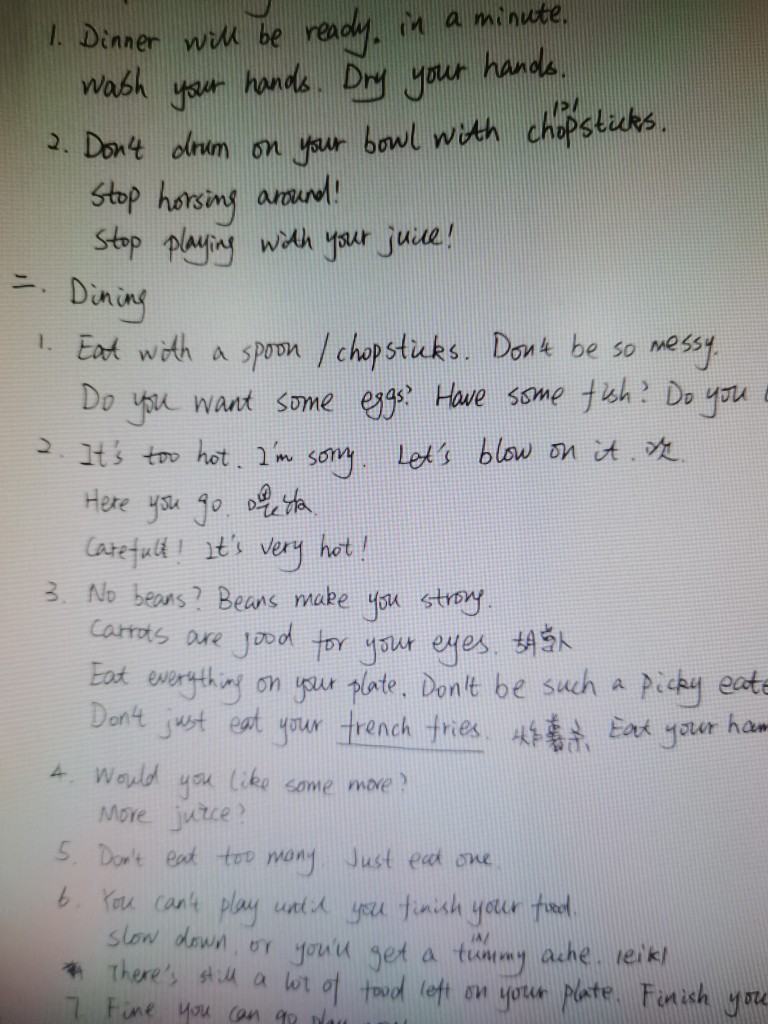 1. Dinner will be ready. in a minute.
Wash your hands. Dry your hands.
2. Don't drum on your bowl with chopsticks.
Stop horsing around!
Stop playing with your juice!
二. Dining
1. Eat with a spoon / chopsticks. Don't be so messy.
Do you want some eggs? Have some fish? Do you
2. It's too hot. I'm sorry. Let's blow on it. 吹
Here you go.
Carefull! It's very hot!
3. No beans? Beans make you strong.
Carrots are good for your eyes. 胡萝卜
Eat everything on your plate. Don't be such a picky eate
Don't just eat your french fries. 炸薯条 Eat your ham
4. Would you like some more?
More juice?
5. Don't eat too many. Just eat one.
6. You can't play until you finish your food.
Slow down, or you'll get a tummy ache. /eik/
* There's still a lot of food left on your plate. Finish you
7. Fine you can go play